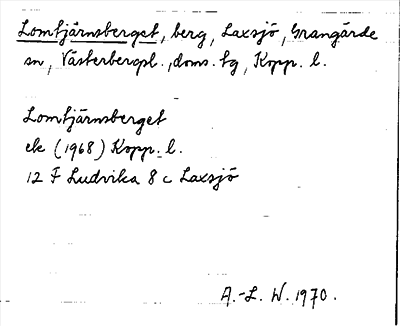 Lomtjärnsberget, berg, Laxsjö, Grangärde
sn, Västerbergsl., doms. tg, Kopp. l.
Lomtjärnsberget
ek (1968) Kopp. l.
12 F Ludvika 8 c Laxsjö
A.-L. W. 1970.